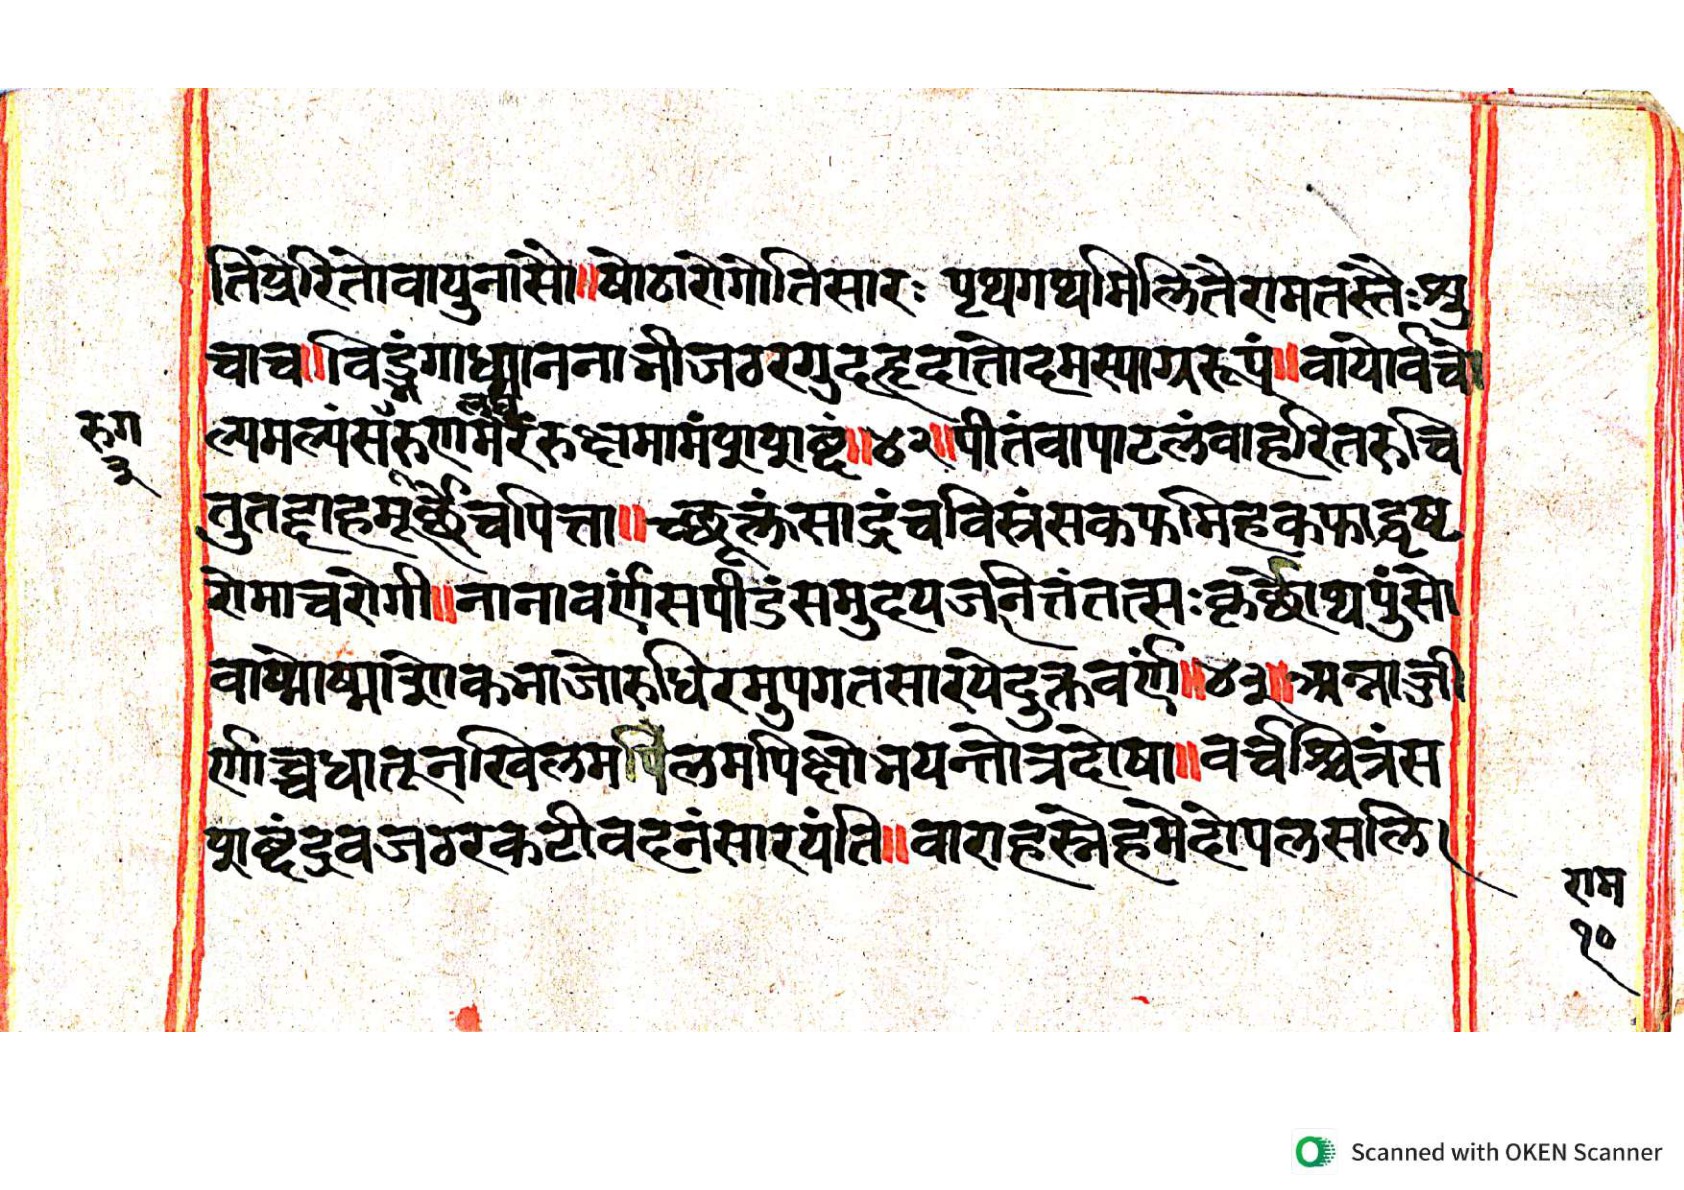 तिप्रेरितोवायुनासौ॥षोठारोगोतिसारः पृथगथमिलितैरामतस्तैःश्शु
चाच॥विड्भंगाध्माननाभीजठरगुदहृदात्तोदमस्याग्ररूपं॥वायोर्वर्चो
ल्पमल्पंसरुगरुणमरंरुक्षमामंशशब्दं॥४२॥पीतंवापाटलंवाहरितरुचि
रुग
३
तुतद्दाहमूर्छेचपित्ता॥च्छुक्लंसाद्रंचविस्रंसकफमिहकफाद्धृष्ट
रोमाचरोगी॥नानावर्णंसपीडंसमुदयजनितंतत्सःकृर्छोथपुंसो
वाष्मोष्माशोकभाजोरुधिरमुपगतसारयेदुक्तवर्णं॥४३॥अन्नाजी
र्णाच्चधातूनखिलमपिलमपिक्षोभयन्तोत्रदोषा॥वर्चश्चित्रंस
शब्दंद्रुवजठरकटीवदनंसारयंति॥वाराहस्नेहमेदोपलसलि।
राम
१०
Scanned with OKEN Scanner